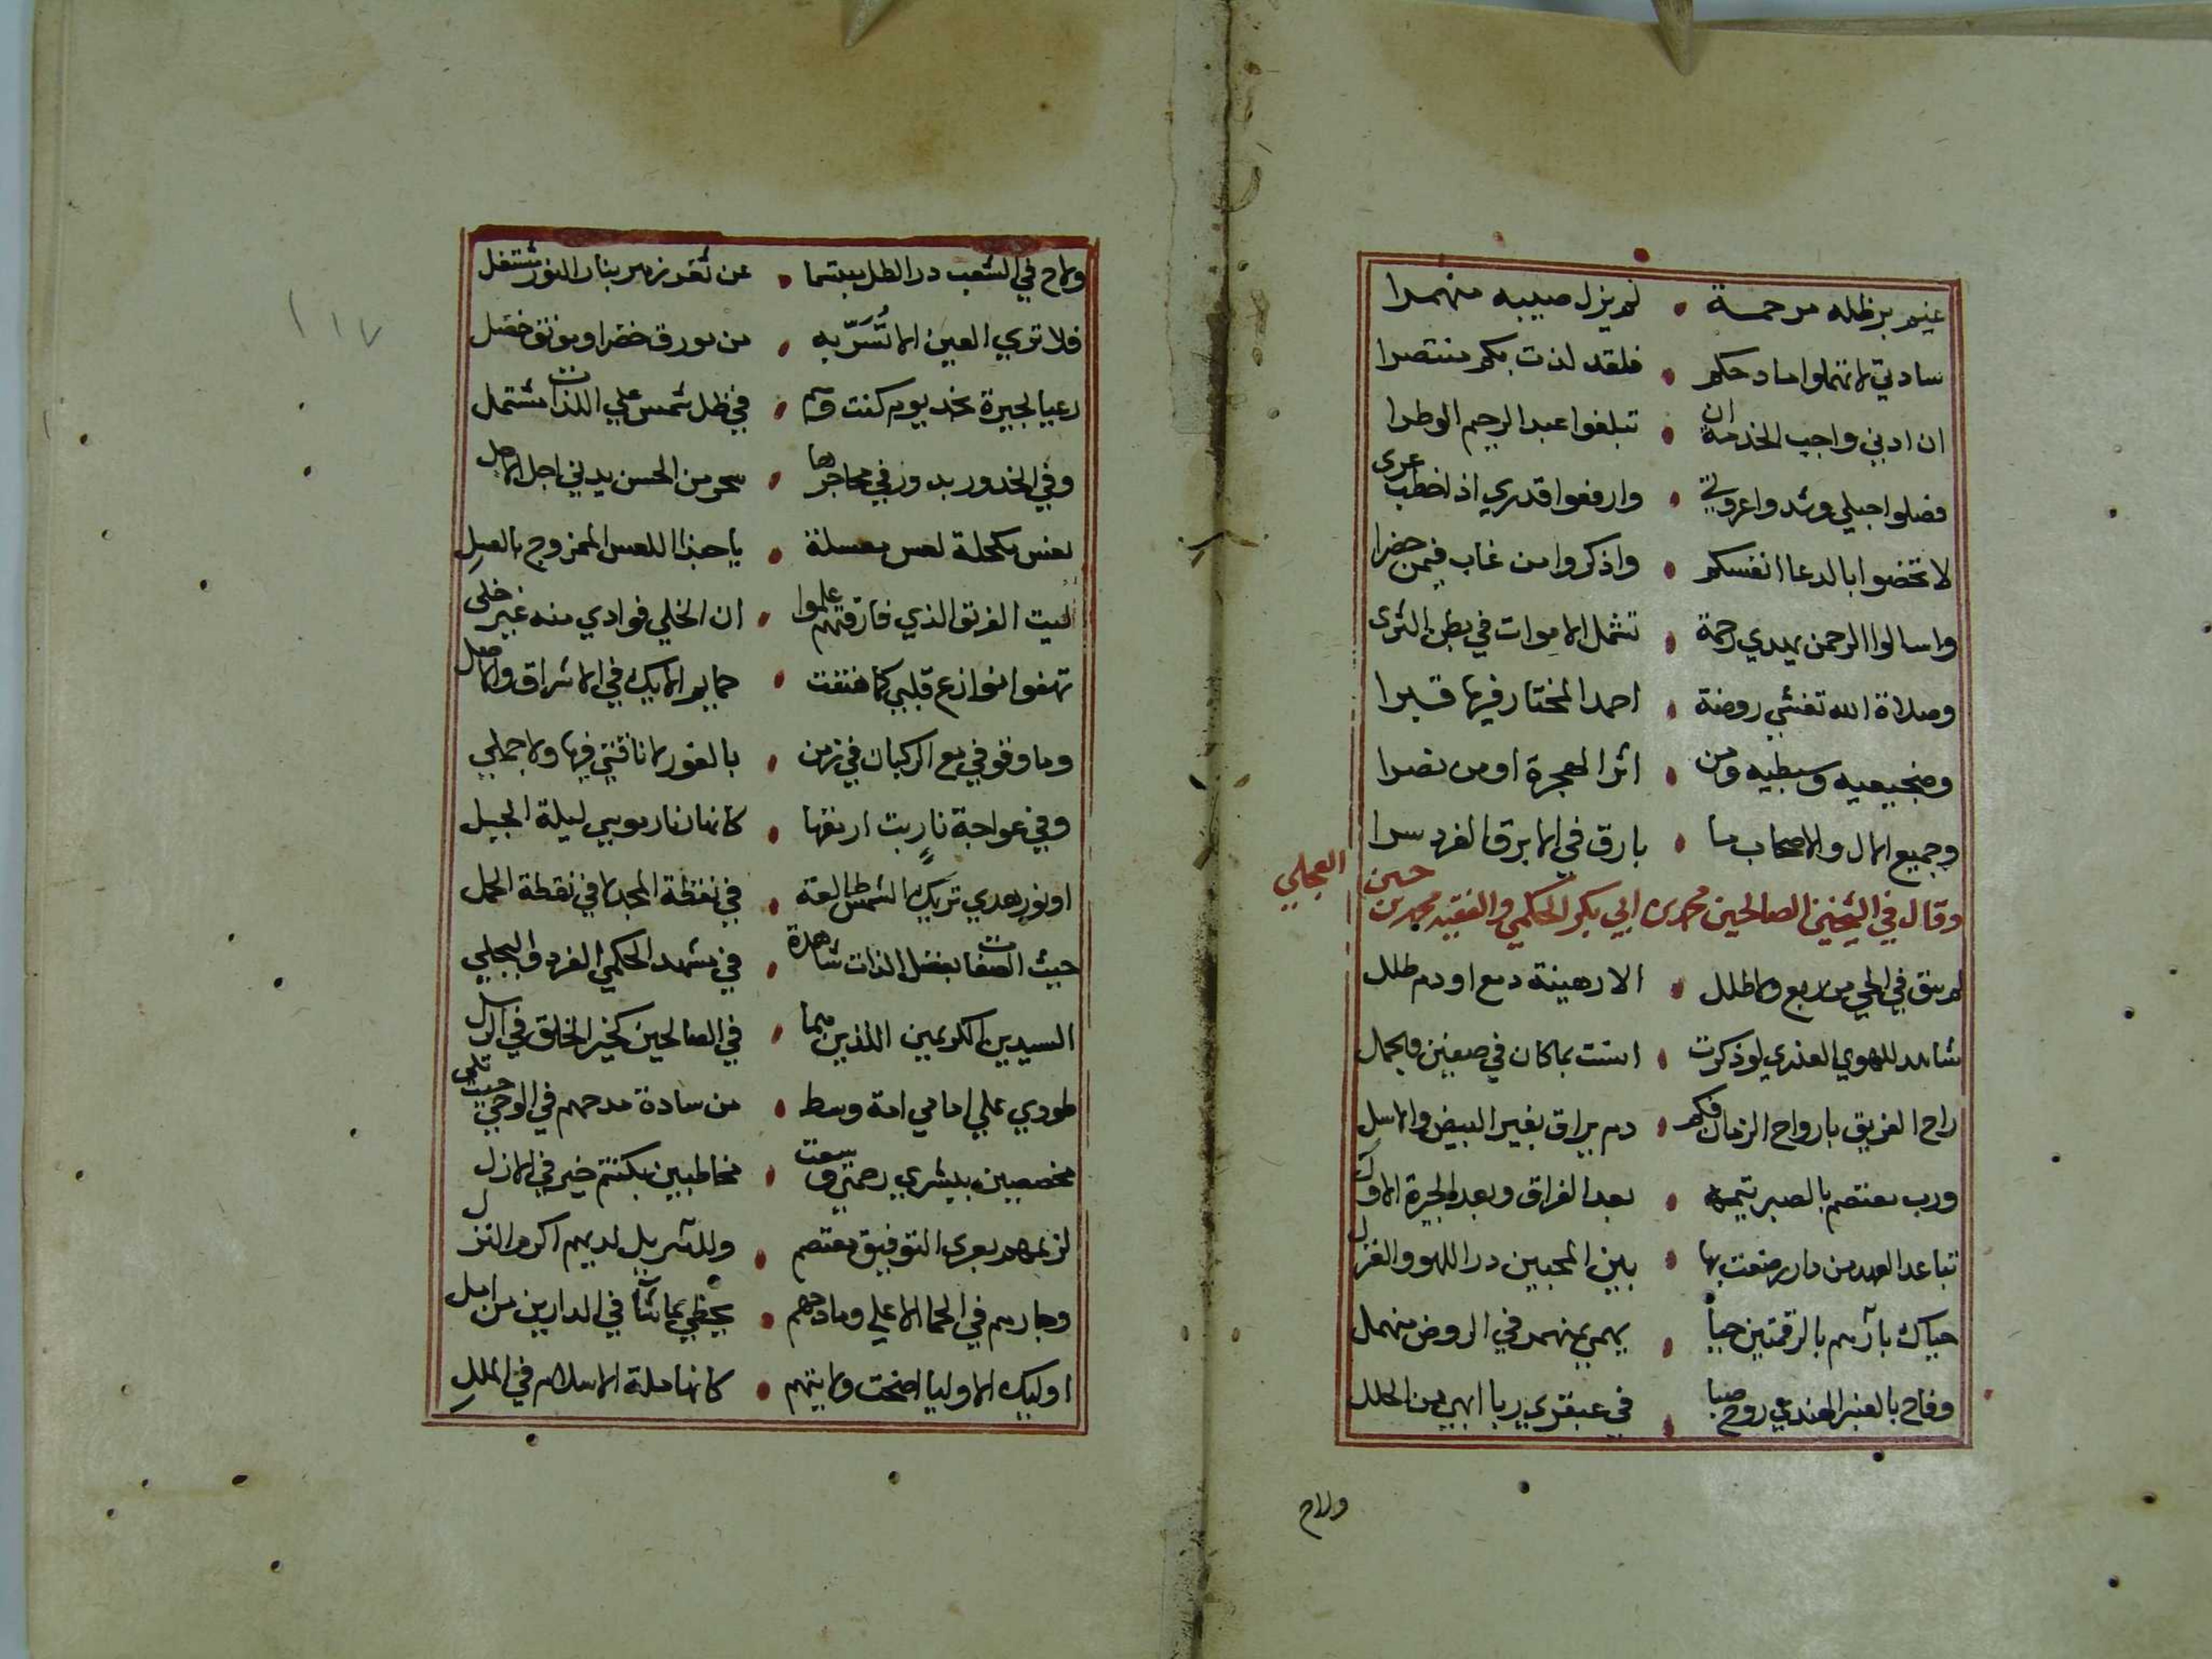 غيم بر ظله مرحمة • لم يزل صيبه منهمرا
سادتي لا تهملوا مادحكم • فلقد لذت بكم منتصرا
ان ادني واجب الخدمة ان • تبلغوا عبد الرحيم الوطرا
فصلوا حبلي وشدوا عروتي • وارفعوا قدري اذا خطب عرى
لا تخصوا بالدعا انفسكم • واذكروا من غاب فيمن حضرا
واسالوا الرحمن يهدي رحمة • تشمل الاموات في بطن الثرى
وصلاة الله تغشي روضة • احمد المختار فيها قبرا
وضجيعيه وسبطيه ومن • اثر الهجرة او من نصرا
وجميع الال والاصحاب ما • بارق في الابرق الفرد سرا
وقال في الشيخين الصالحين محمد بن ابي بكر الحكمي والفقيه محمد بن حسين البجلي
لم يبق في الحي من ربع ولا طلل • الا رهينة دمع او دم طلل
شاهد للهوي العذري لو ذكرت • انست بما كان في صفين والجمل
راح الفريق بارواح الرجال فكم • دم يراق بغير البيض والاسل
ورب معتصم بالصبر تيمه • بعد الفراق وبعد الجيرة الاول
تباعد العهد من دار رضعت بها • بين المحبين در اللهو والغزل
حياك يا رسم بالرقمتين حيا • يهمي بمنهمر في الروض منهمل
وفاح بالعنبر الهندي روح صبا • في عبقري ربا ابهي من الحلل
ولاح
ولاح في الشعب در الطل مبتسما • عن ثغر زهر بنار النور مشتعل
فلا تري العين الا ما تسر به • من مورق خضر او مونق خضل
رعيا لجيرة نجد يوم كنت وهم • في ظل شمس علي اللذات مشتمل
وفي الخدور بدور في محاجرها • سحر من الحسن يدني اجل الاجل
لعس مكحلة لعس معسلة • يا حبذا اللعس الممزوج بالعسل
ليت الفريق الذي فارقتهم علموا • ان الخلي فوادي منه غير خلي
تهفو نوازع قلبي كلما هتفت • حمايم الايك في الاشراق والاصل
وما وقوفي مع الركبان في زمن • بالغور لا ناقتي فيها ولا جملي
وفي عواجة نار بت ارمقها • كانها نار موسي ليلة الجبل
او نور هدي تريك الشمس طالعة • في نقطة المجد لا في نقطة الحمل
حيث الصفات بفضل الذات شاهدة • في مشهد الحكمي الفرد والبجلي
السيدين الكريمين اللذين هما • في الصالحين كخير الخلق في الرسل
طودي علي امامي امة وسط • من سادة مدحهم في الوحي حيث تلي
مخصصين ببشري رحمتي وسعت • مخاطبين بكنتم خير في الازل
لزيمهم بعري التوفيق معتصم • وللنزيل لديهم اكرم النزل
وجارهم في الحما الاعلي ومادحهم • يحظي بما شا في الدارين من امل
اوليك الاوليا اضحت ولايتهم • كانها ملة الاسلام في الملل
١١٧